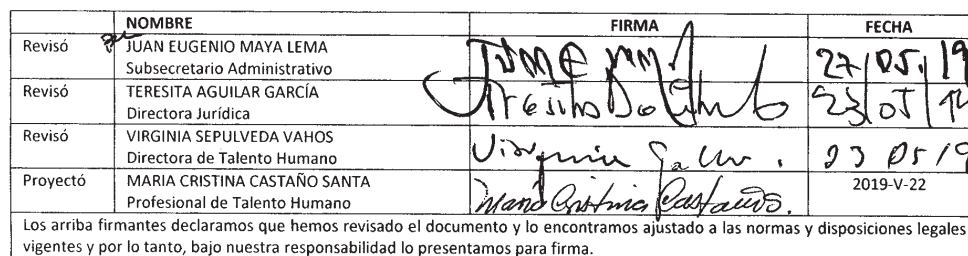 NOMBRE FIRMA FECHA
Revisó JUAN EUGENIO MAYA LEMA 27/05/19
Subsecretario Administrativo
Revisó TERESITA AGUILAR GARCÍA 23/05/19
Directora Jurídica
Revisó VIRGINIA SEPULVEDA VAHOS Virginia 23 05/19
Directora de Talento Humano
Proyectó MARIA CRISTINA CASTAÑO SANTA María Cristina Castaño S. 2019-V-22
Profesional de Talento Humano
Los arriba firmantes declaramos que hemos revisado el documento y lo encontramos ajustado a las normas y disposiciones legales
vigentes y por lo tanto, bajo nuestra responsabilidad lo presentamos para firma.